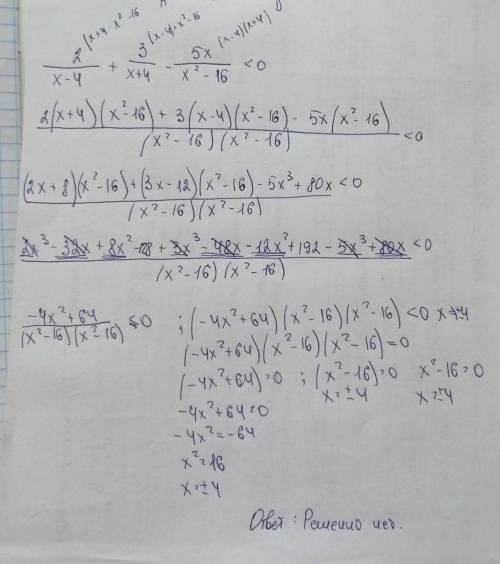 (x+4 · x²-16 (x-4)·x²-16 (x-4)(x+4)
2/(x-4) + 3/(x+4) - 5x/(x²-16) <0
(2(x+4)(x²-16)+3(x-4)(x²-16)-5x(x²-16))/((x²-16)(x²-16)) <0
((2x+8)(x²-16)+(3x-12)(x²-16)-5x³+80x)/((x²-16)(x²-16)) <0
(2x³-32x+8x²-128+3x³-48x-12x²+192-5x³+80x)/((x²-16)(x²-16)) <0
(-4x²+64)/((x²-16)(x²-16)) <0 ; (-4x²+64)(x²-16)(x²-16)<0 x≠4
(-4x²+64)(x²-16)(x²-16)=0
(-4x²+64)=0 ; (x²-16)=0 x²-16=0
x=±4 x=±4
-4x²+64=0
-4x²=-64
x²=16
x=±4
Ответ: Решений нет.